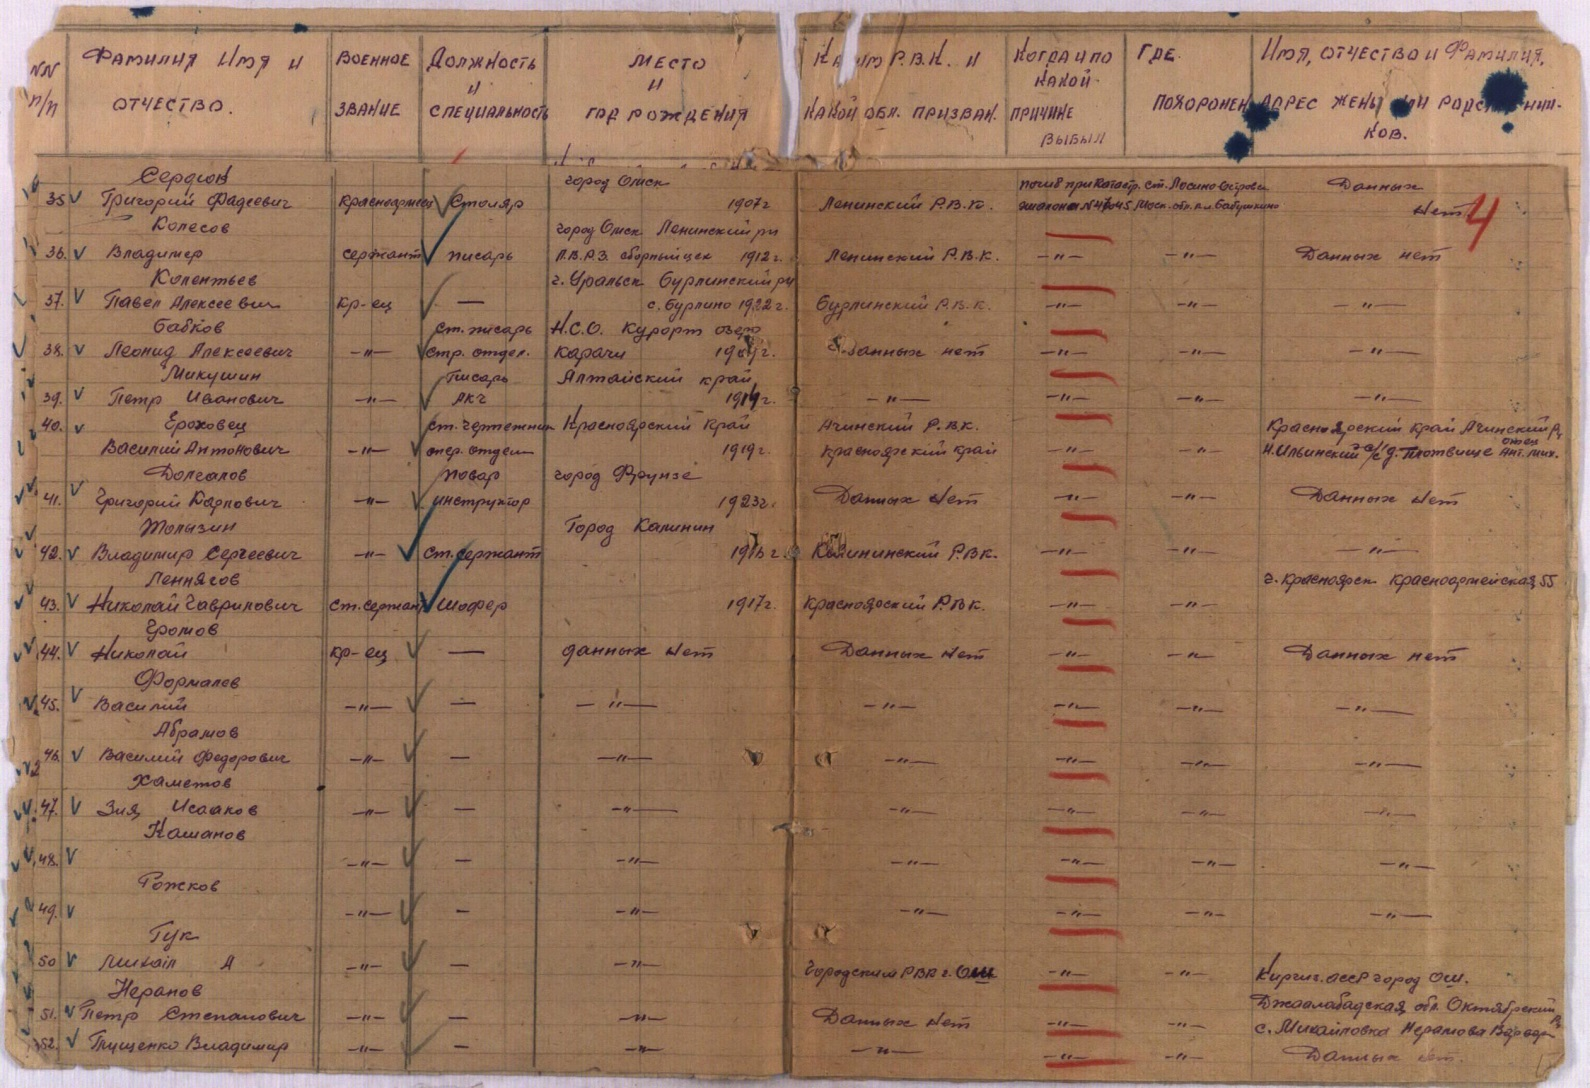 NN п/п | Фамилия Имя и отчество. | Военное звание | Должность и специальность | Место и год рождения | Р.В.К. и какой обл. призван. | Когда и по какой причине выбыл | Где похоронен | Имя, отчество и фамилия, адрес жены
4
35 Сердюк Григорий Фадеевич | красноармеец | Столяр | город Омск 1907г | Ленинский Р.В.К. | погиб при катастр. | ст. Лосиноостровск Моск. обл. | Данных нет
36. Колесов Владимер | сержант | писарь | город Омск Ленинский рн П.В.Р.З. сборный цех 1912г. | Ленинский Р.В.К. | -"- | -"- | Данных нет
37. Колентьев Павел Алексеевич | кр-ец | — | г. Уральск Бурлинский рн с. Бурлино 1922г. | Бурлинский Р.В.К. | -"- | -"- | -"-
38. Бабков Леонид Алексеевич | -"- | ст. писарь стр. отдел. | Н.С.О. Курорт озеро Карачи | Данных нет | -"- | -"- | -"-
39. Микушин Петр Иванович | -"- | Писарь АКЧ | Алтайский край | -"- | -"- | -"- | -"-
40. Ероховец Василий Антонович | -"- | ст. чертежник опер. отдел | Красноярский край 1919г. | Ачинский Р.В.К. Красноярский край | -"- | -"- | Красноярский край Ачинский Р Н. Ильинский с/с д. Плотвище отец Ант. Мих.
41. Долгалов Григорий Карпович | -"- | повар инструктор | город Фрунзе 1923г. | Данных нет | -"- | -"- | Данных нет
42. Жолызин Владимир Сергеевич | -"- | ст. сержант | Город Калинин 1916г. | Калининский Р.В.К. | -"- | -"- | -"-
43. Леннясов Николай Гаврилович | ст. сержант | Шофер | 1917г. | Красноярский Р.В.К. | -"- | -"- | г. Красноярск Красноармейская, 55
44. Громов Николай | кр-ец | — | данных нет | Данных нет | -"- | -"- | Данных нет
45. Формалев Василий | -"- | — | -"- | -"- | -"- | -"- | -"-
46. Абрамов Василий Федорович | -"- | — | -"- | -"- | -"- | -"- | -"-
47. Хаметов Зия Исааков | -"- | — | -"- | -"- | -"- | -"- | -"-
48. Кашанов | -"- | — | -"- | -"- | -"- | -"- | -"-
49. Рожков | -"- | — | -"- | -"- | -"- | -"- | -"-
50 Гук Михаил А | -"- | — | -"- | Городским РВК г. Ош | -"- | -"- | Киргиг. ССР город Ош.
51. Нерамов Петр Степанович | -"- | — | -"- | Данных нет | -"- | -"- | Джаалабадская обл. Октябрский Р с. Михайловка Нерамова
52. Глущенко Владимир | -"- | — | -"- | -"- | -"- | -"- | Данных нет.